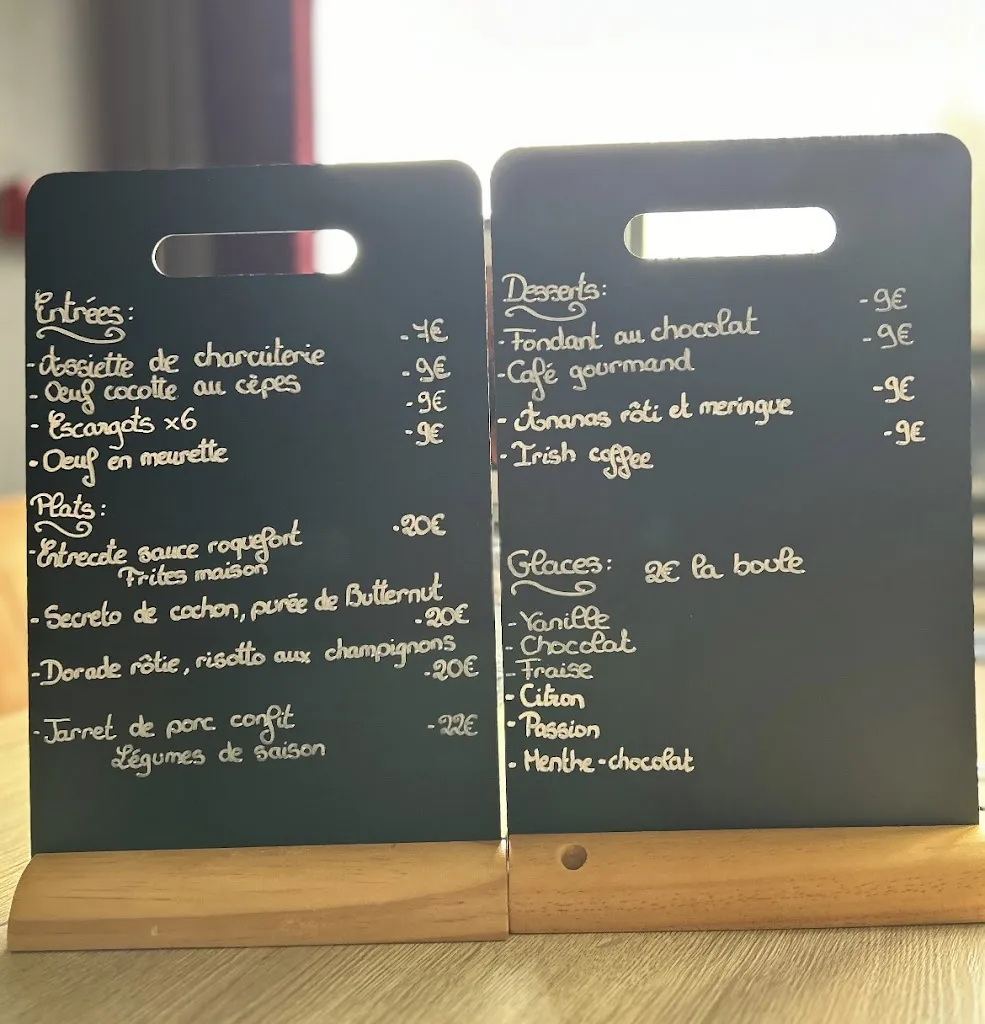 Entrées:
-Assiette de charcuterie -7€
-Oeuf cocotte au cèpes -9€
-Escargots x6 -9€
-Oeuf en meurette -9€
Plats:
-Entrecote sauce roquefort -20€
Frites maison
-Secreto de cochon, purée de Butternut
-20€
-Dorade rôtie, risotto aux champignons
-20€
-Jarret de porc confit -22€
Légumes de saison
Desserts:
-Fondant au chocolat -9€
-Café gourmand -9€
-Ananas rôti et meringue -9€
-Irish coffee -9€
Glaces: 2€ la boule
-Vanille
-Chocolat
-Fraise
-Citron
-Passion
-Menthe-chocolat